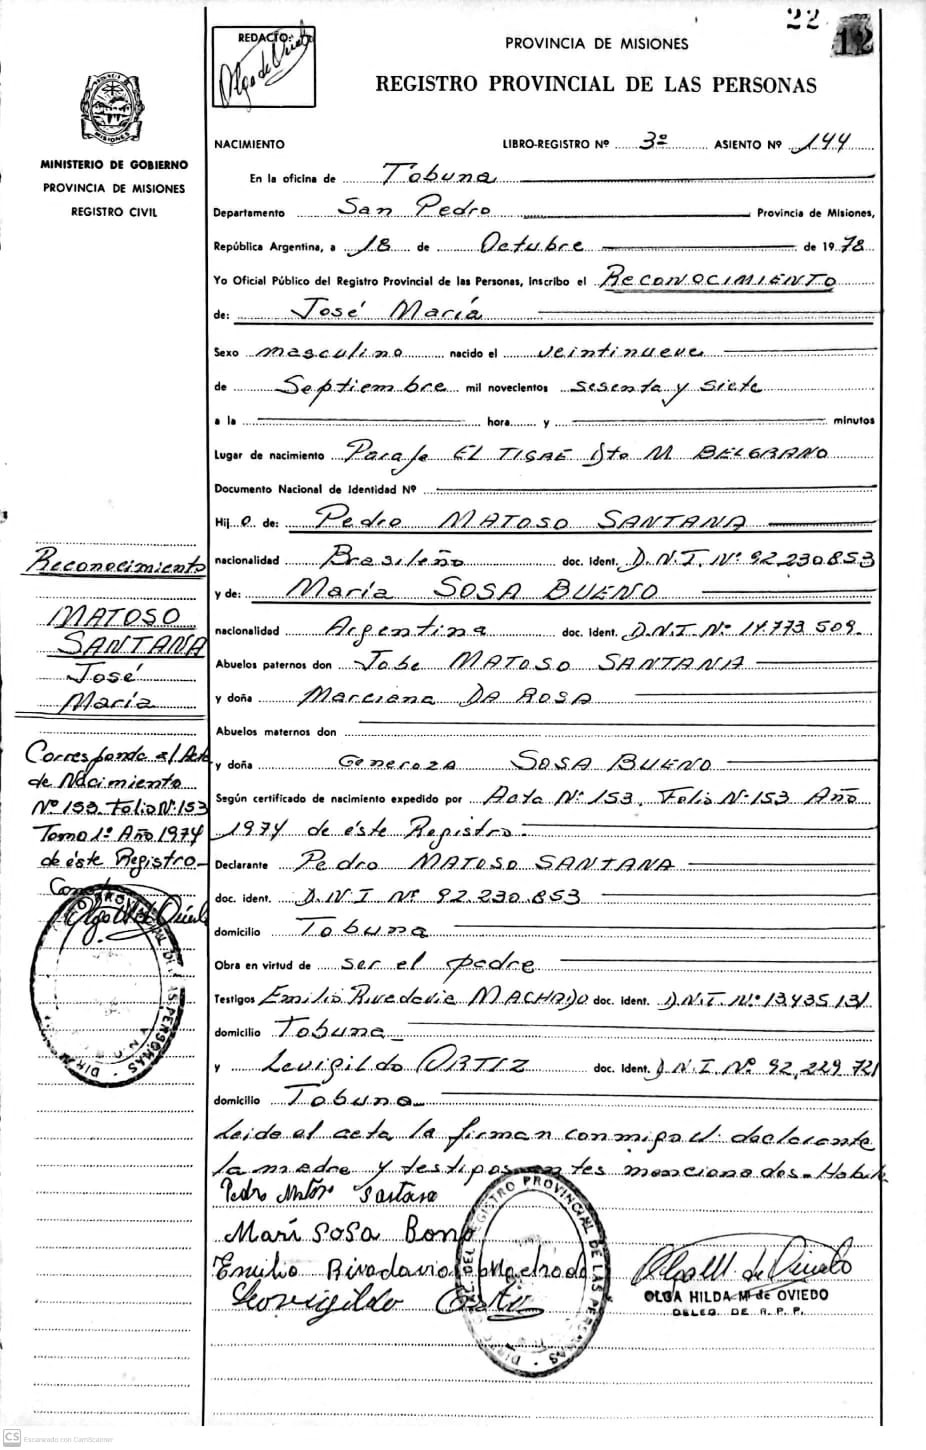 22
12
REDACTO:
Olga de Oviedo
PROVINCIA DE MISIONES
REGISTRO PROVINCIAL DE LAS PERSONAS
MISIONES
MINISTERIO DE GOBIERNO
PROVINCIA DE MISIONES
REGISTRO CIVIL
NACIMIENTO LIBRO-REGISTRO Nº 3º ASIENTO Nº 144
En la oficina de Tobuna
Departamento San Pedro Provincia de Misiones,
República Argentina, a 18 de Octubre de 1978
Yo Oficial Público del Registro Provincial de las Personas, Inscribo el RECONOCIMIENTO
de: José María
Sexo masculino nacido el veintinueve
de Septiembre mil novecientos sesenta y siete
a la hora y minutos
Lugar de nacimiento Paraje EL TIGRE Dto M. BELGRANO
Documento Nacional de Identidad Nº
Hijo de: Pedro MATOSO SANTANA
nacionalidad Brasileño doc. ident. D.N.I. Nº 92.230.853
y de: María SOSA BUENO
nacionalidad Argentina doc. ident. D.N.I. Nº 14.773.509.
Abuelos paternos don Jobe MATOSO SANTANA
y doña Marciana DA ROSA
Abuelos maternos don
y doña Generoza SOSA BUENO
Según certificado de nacimiento expedido por Acta Nº 153, Folio Nº 153 Año
1974 de éste Registro.
Declarante Pedro MATOSO SANTANA
doc. ident. D.N.I Nº 92.230.853
domicilio Tobuna
Obra en virtud de ser el padre
Testigos Emilio Rivadavia MACHADO doc. ident. D.N.I. Nº 13.435.131
domicilio Tobuna
y Leuvigildo ORTIZ doc. ident. D.N.I. Nº 92,229.721
domicilio Tobuna
Leida el acta la firman conmigo el declarante
la madre y testigos antes mencionados.-
Pedro Matoso Santana
Marí SOSA
Emilio Rivadavia Machado
Leovigildo Ortiz
Olga M. de Oviedo
OLGA HILDA M. de OVIEDO
DELEG. DE R. P. P.
Reconocimiento
MATOSO
SANTANA
José
María
Corresponde al Acta
de Nacimiento
Nº 153. Folio Nº 153
Tomo 1º Año 1974
de éste Registro-
Olga M. de Oviedo
REGISTRO PROVINCIAL DE LAS PERSONAS
CS Escaneado con CamScanner